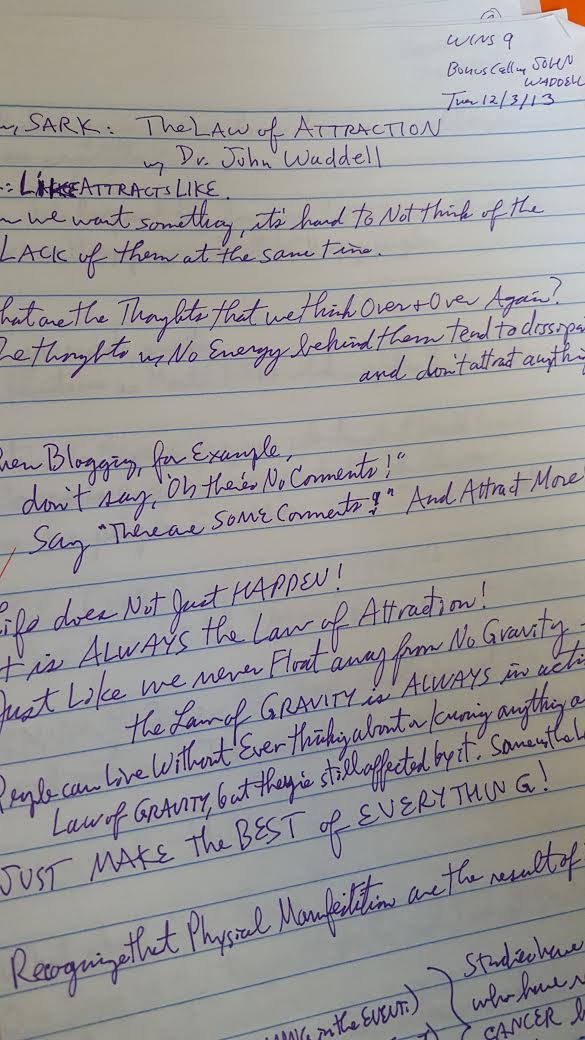 WINS 9
Bonus Call w JOHN
WADDELL
Tues 12/3/13
SARK: The LAW of ATTRACTION
w/ Dr. John Waddell
: LIKE ATTRACTS LIKE.
n we want something, it's hard to Not think of the
LACK of them at the same time.
hat are the Thoughts that we think Over + Over Again?
he thoughts w/ No Energy behind them tend to dissipa
and don't attract anythin
hen Blogging, for Example,
don't say, "Oh there's No Comments!"
Say "There are SOME Comments!" And Attract More
Life does Not Just HAPPEN!
t is ALWAYS the Law of Attraction!
Just Like we never Float away from No Gravity -
the Law of GRAVITY is ALWAYS in acti
People can Live Without Ever thinking about or knowing anything a
Law of GRAVITY, but they're still affected by it. Same w/ the La
JUST MAKE the BEST of EVERYTHING!
Recognize that Physical Manifestition are the result of
Studies have
in the EVENT)
who have
CANCER